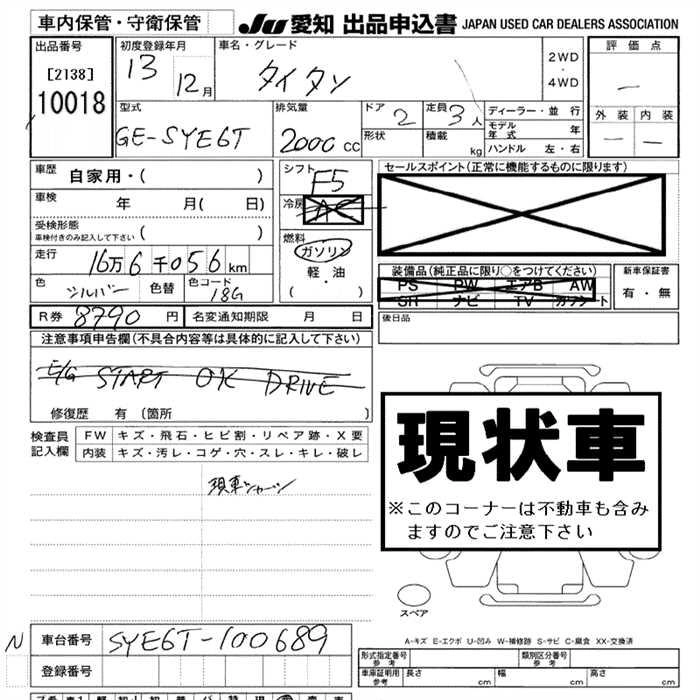 車内保管・守衛保管
JU 愛知 出品申込書 JAPAN USED CAR DEALERS ASSOCIATION
出品番号
[2138]
10018
初度登録年月
13 12月
車名・グレード
タイタン
2WD
・
4WD
評価点
—
外装 内装
— —
型式
GE-SYE6T
排気量
2000 cc
ドア 2
形状
定員 3人
積載 kg
ディーラー・並行
モデル年式 年
ハンドル 左・右
車歴 自家用・( )
車検 年 月( 日)
受検形態
車検付きのみ記入して下さい ( )
走行 16万6千056km
色 シルバー 色替 色コード 18G
シフト F5
冷房 AC
燃料
ガソリン
軽・油
( ・ )
セールスポイント(正常に機能するものに限ります)
装備品(純正品に限り○をつけてください)
PS PW エアB AW
SH ナビ TV カワシート
新車保証書
有・無
R券 8790 円 名変通知期限 月 日
後日品
注意事項申告欄(不具合内容等は具体的に記入して下さい)
E/G START OK DRIVE
修復歴 有 (箇所 )
検査員記入欄
FW キズ・飛石・ヒビ割・リペア跡・X要
内装 キズ・汚レ・コゲ・穴・スレ・キレ・破レ
現車シャーシ
現状車
※このコーナーは不動車も含み
ますのでご注意下さい
スペア
N 車台番号 SYE6T-100689
登録番号
A-キズ E-エクボ U-凹み W-補修跡 S-サビ C-腐食 XX-交換済
形式指定番号 参考
類別区分番号 参考
車庫証明用 参考 長さ cm 幅 cm 高さ cm